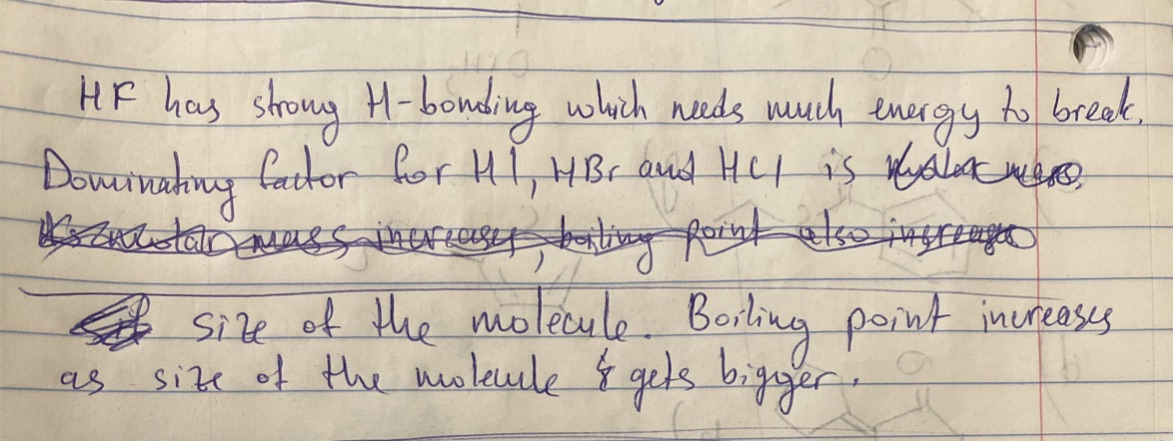 HF has strong H-bonding which needs much energy to break.
Dominating factor for HI, HBr and HCl is
mass increases, boiling point also increases
size of the molecule. Boiling point increases
as size of the molecule gets bigger.